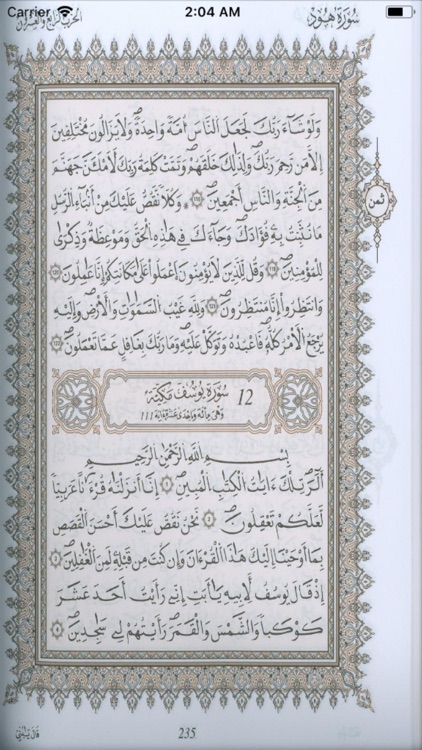 Carrier 2:04 AM
سُورَةُ هُودٍ
الحزب الرابع والعشرون
وَلَوْ شَآءَ رَبُّكَ لَجَعَلَ اَ۬لنَّاسَ أُمَّةٗ وَٰحِدَةٗۖ وَلَا يَزَالُونَ مُخْتَلِفِينَ
إِلَّا مَن رَّحِمَ رَبُّكَۖ وَلِذَٰلِكَ خَلَقَهُمْۖ وَتَمَّتْ كَلِمَةُ رَبِّكَ لَأَمْلَأَنَّ جَهَنَّمَ
مِنَ اَ۬لْجِنَّةِ وَالنَّاسِ أَجْمَعِينَۖ وَكُلّاٗ نَّقُصُّ عَلَيْكَ مِنْ أَنۢبَآءِ اِ۬لرُّسُلِ
مَا نُثَبِّتُ بِهِۦ فُؤَادَكَۖ وَجَآءَكَ فِي هَٰذِهِ اِ۬لْحَقُّ وَمَوْعِظَةٞ وَذِكْر۪ىٰ
لِلْمُؤْمِنِينَۖ وَقُل لِّلذِينَ لَا يُومِنُونَ اَ۪عْمَلُواْ عَلَىٰ مَكَانَتِكُمُۥٓ إِنَّا عَٰمِلُونَ
وَانتَظِرُوٓاْ إِنَّا مُنتَظِرُونَۖ وَلِلهِ غَيْبُ اُ۬لسَّمَٰوَٰتِ وَالْأَرْضِۖ وَإِلَيْهِ
يَرْجِعُ اُ۬لْأَمْرُ كُلُّهُۥۖ فَاعْبُدْهُ وَتَوَكَّلْ عَلَيْهِۖ وَمَا رَبُّكَ بِغَٰفِلٍ عَمَّا تَعْمَلُونَۖ
ثمن
12 سُورَةُ يُوسُفَ مَكِّيَّة
وَهْيَ مِائَة وَإِحْدَى عَشْرَةَ ءَايَة 111
بِسْمِ اِ۬للَّهِ اِ۬لرَّحْمَٰنِ اِ۬لرَّحِيمِ
أَلَٓر۪ۖ تِلْكَ ءَايَٰتُ اُ۬لْكِتَٰبِ اِ۬لْمُبِينِۖ إِنَّآ أَنزَلْنَٰهُ قُرْءَٰناً عَرَبِيّاٗ
لَّعَلَّكُمْ تَعْقِلُونَۖ نَحْنُ نَقُصُّ عَلَيْكَ أَحْسَنَ اَ۬لْقَصَصِ
بِمَآ أَوْحَيْنَآ إِلَيْكَ هَٰذَا اَ۬لْقُرْءَانَ وَإِن كُنتَ مِن قَبْلِهِۦ لَمِنَ اَ۬لْغَٰفِلِينَۖ
إِذْ قَالَ يُوسُفُ لِأَبِيهِ يَٰٓأَبَتِ إِنِّي رَأَيْتُ أَحَدَ عَشَرَ
كَوْكَباٗ وَالشَّمْسَ وَالْقَمَرَۖ رَأَيْتُهُمْ لِي سَٰجِدِينَۖ
قَالَ يَٰبُنَيِّ
235